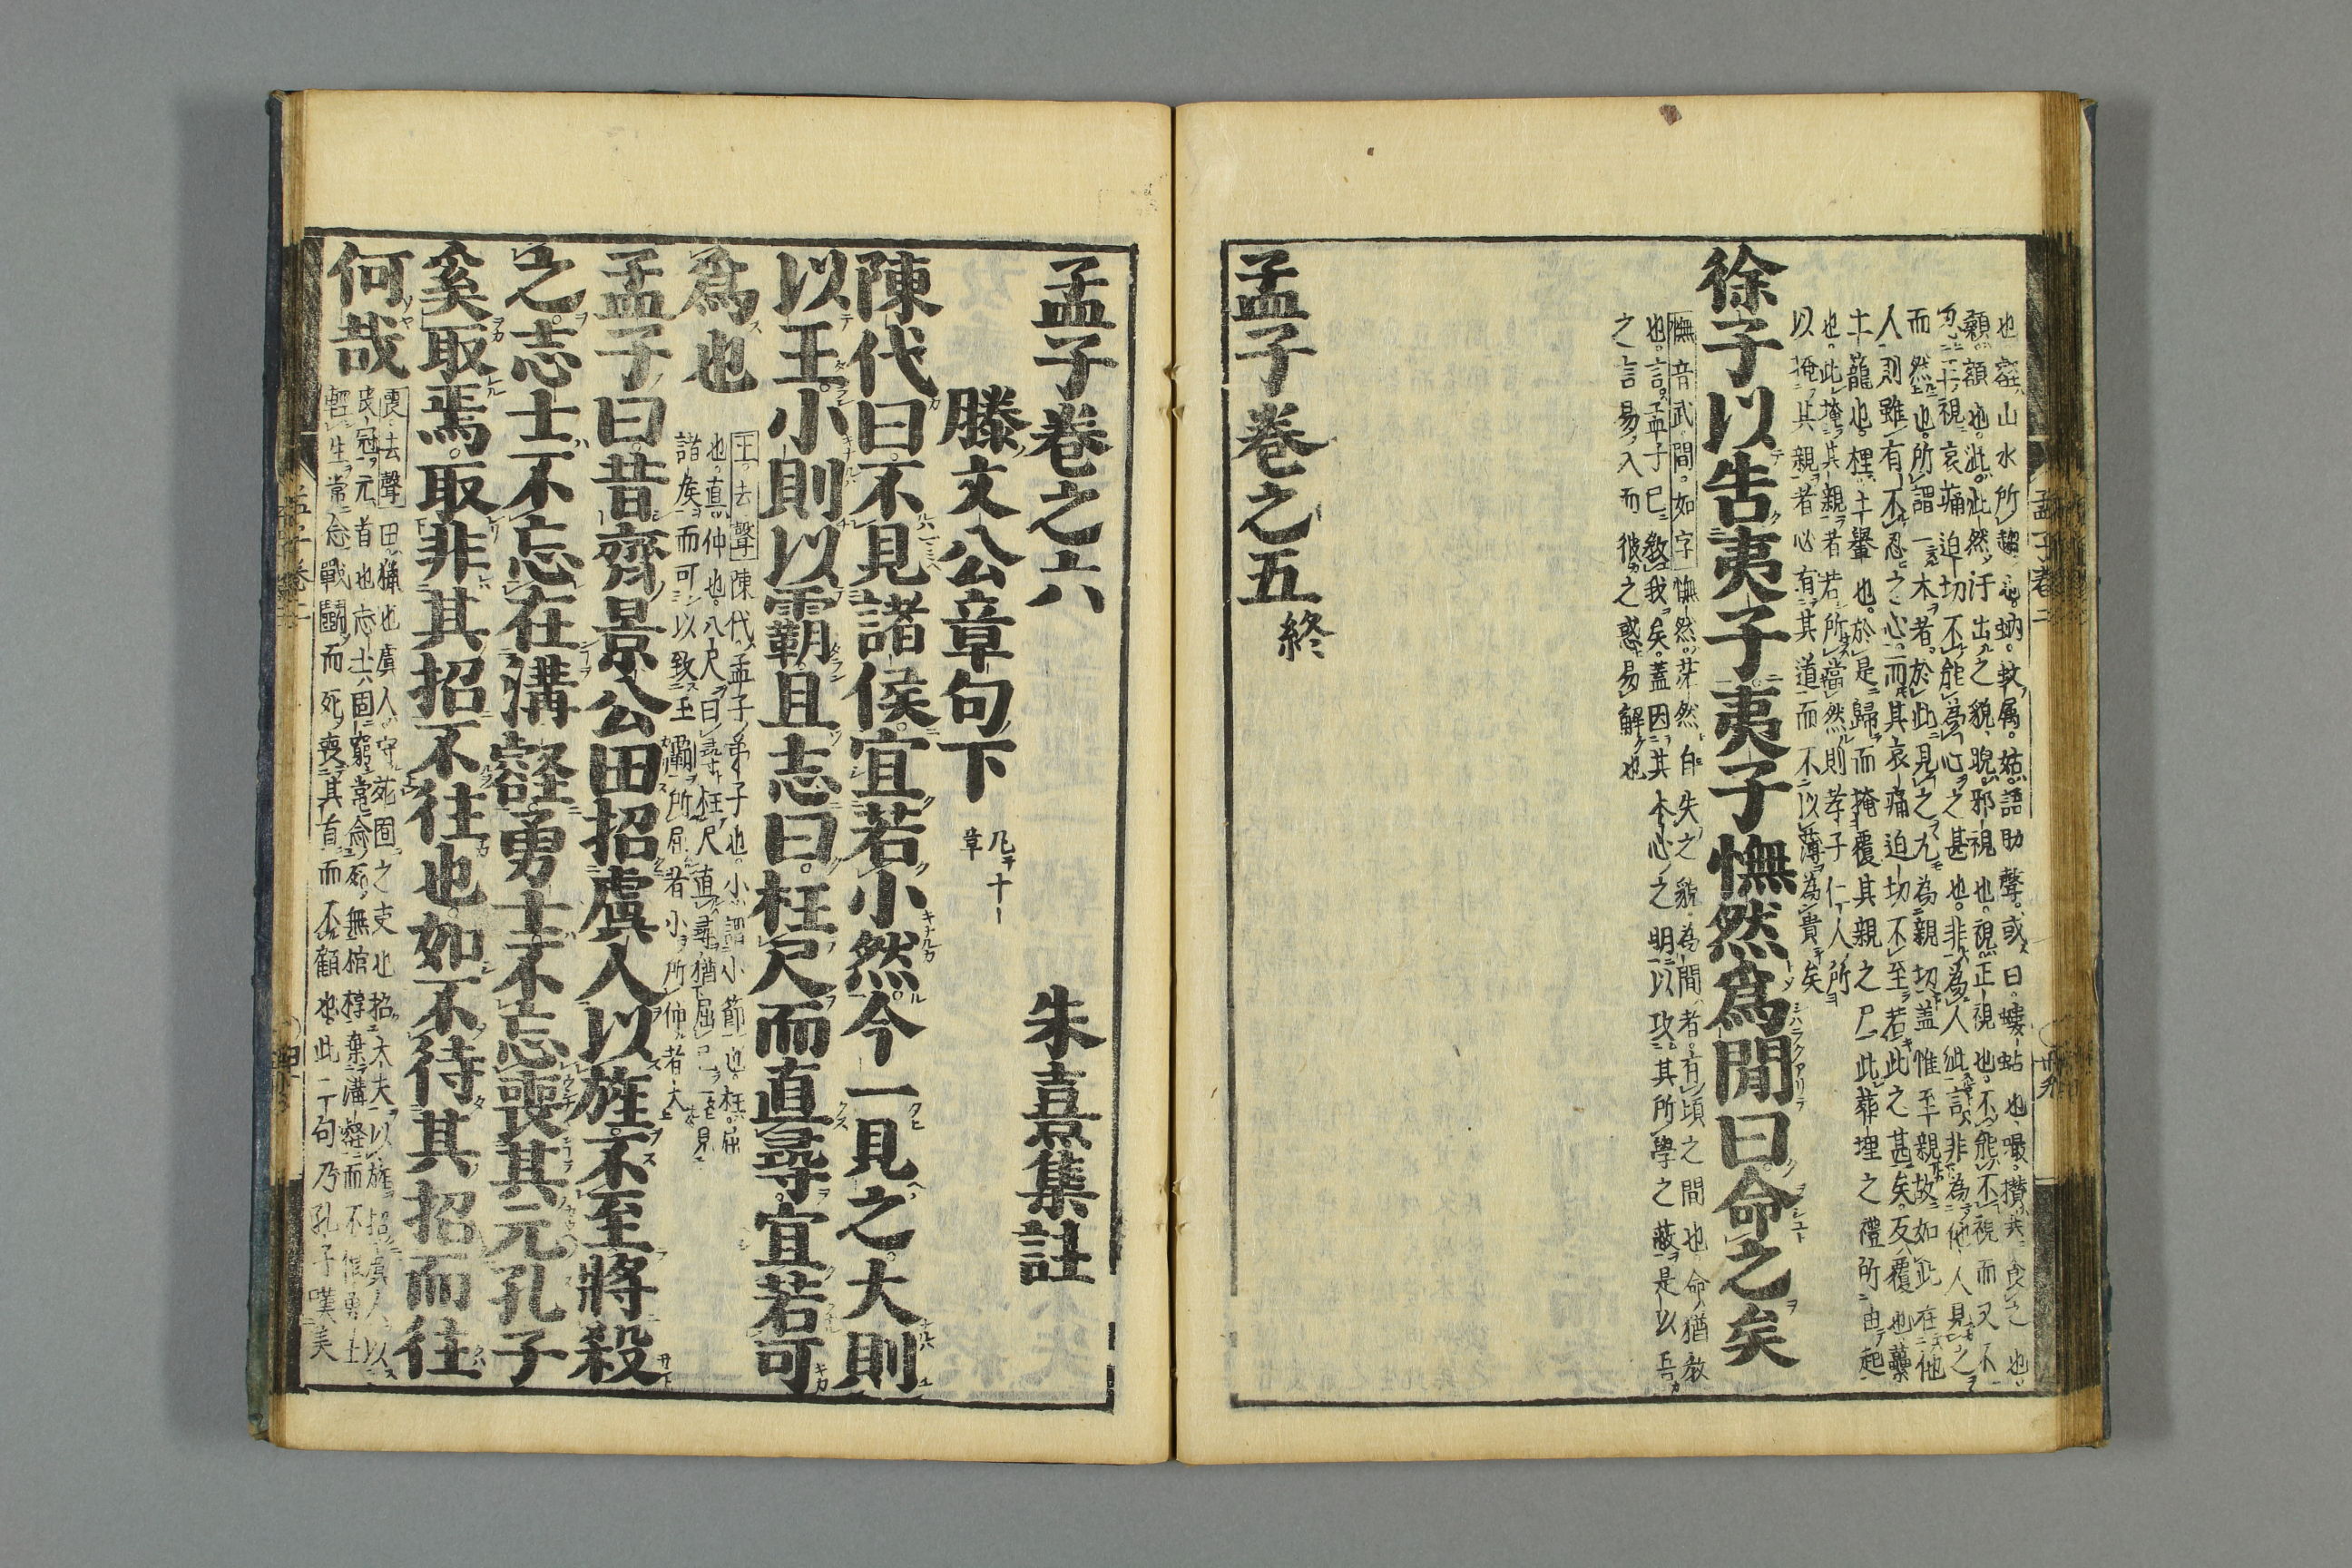 也壑山水所趨也蚋蚊屬姑語助聲或曰螻蛄也嘬攢共食之也
顙額也泚泚然汗出之貌睨邪視也視正視也不能不視而又不
忍正視哀痛迫切不能為心之甚也非為人泚言非為他人見之
而然也所謂一本者於此見之尤為親切蓋惟至親故如此在他
人則雖有不忍之心而其哀痛迫切不至若此之甚矣反覆也虆
土籠也梩土轝也於是歸而掩覆其親之尸此葬埋之禮所由起
也此掩其親者若所當然則孝子仁人所
以掩其親者必有其道而不以薄為貴矣
徐子以告夷子夷子憮然爲閒曰命之矣
憮音武間如字憮然茫然自失之貌為間者有頃之間也命猶教
也言孟子已教我矣蓋因其本心之明以攻其所學之蔽是以吾
之言易入而彼之惑易解也
孟子巻之五終
孟子巻之六 朱熹集註
滕文公章句下 凡十章
陳代曰不見諸侯宜若小然今一見之大則
以王小則以霸且志曰枉尺而直尋宜若可
爲也
王去聲陳代孟子弟子也小謂小節也枉屈
也直伸也八尺曰尋枉尺直尋猶屈己一見
諸矦而可以致王霸所屈者小所伸者大
孟子曰昔齊景公田招虞人以旌不至將殺
之志士不忘在溝壑勇士不忘喪其元孔子
奚取焉取非其招不往也如不待其招而往
何哉
喪去聲田獵也虞人守苑囿之吏也招大夫以旌招虞人以
皮冠元首也志士固窮常念死無棺椁棄溝壑而不恨勇士
輕生常念戰鬭而死喪其首而不顧也此二句乃孔子嘆美